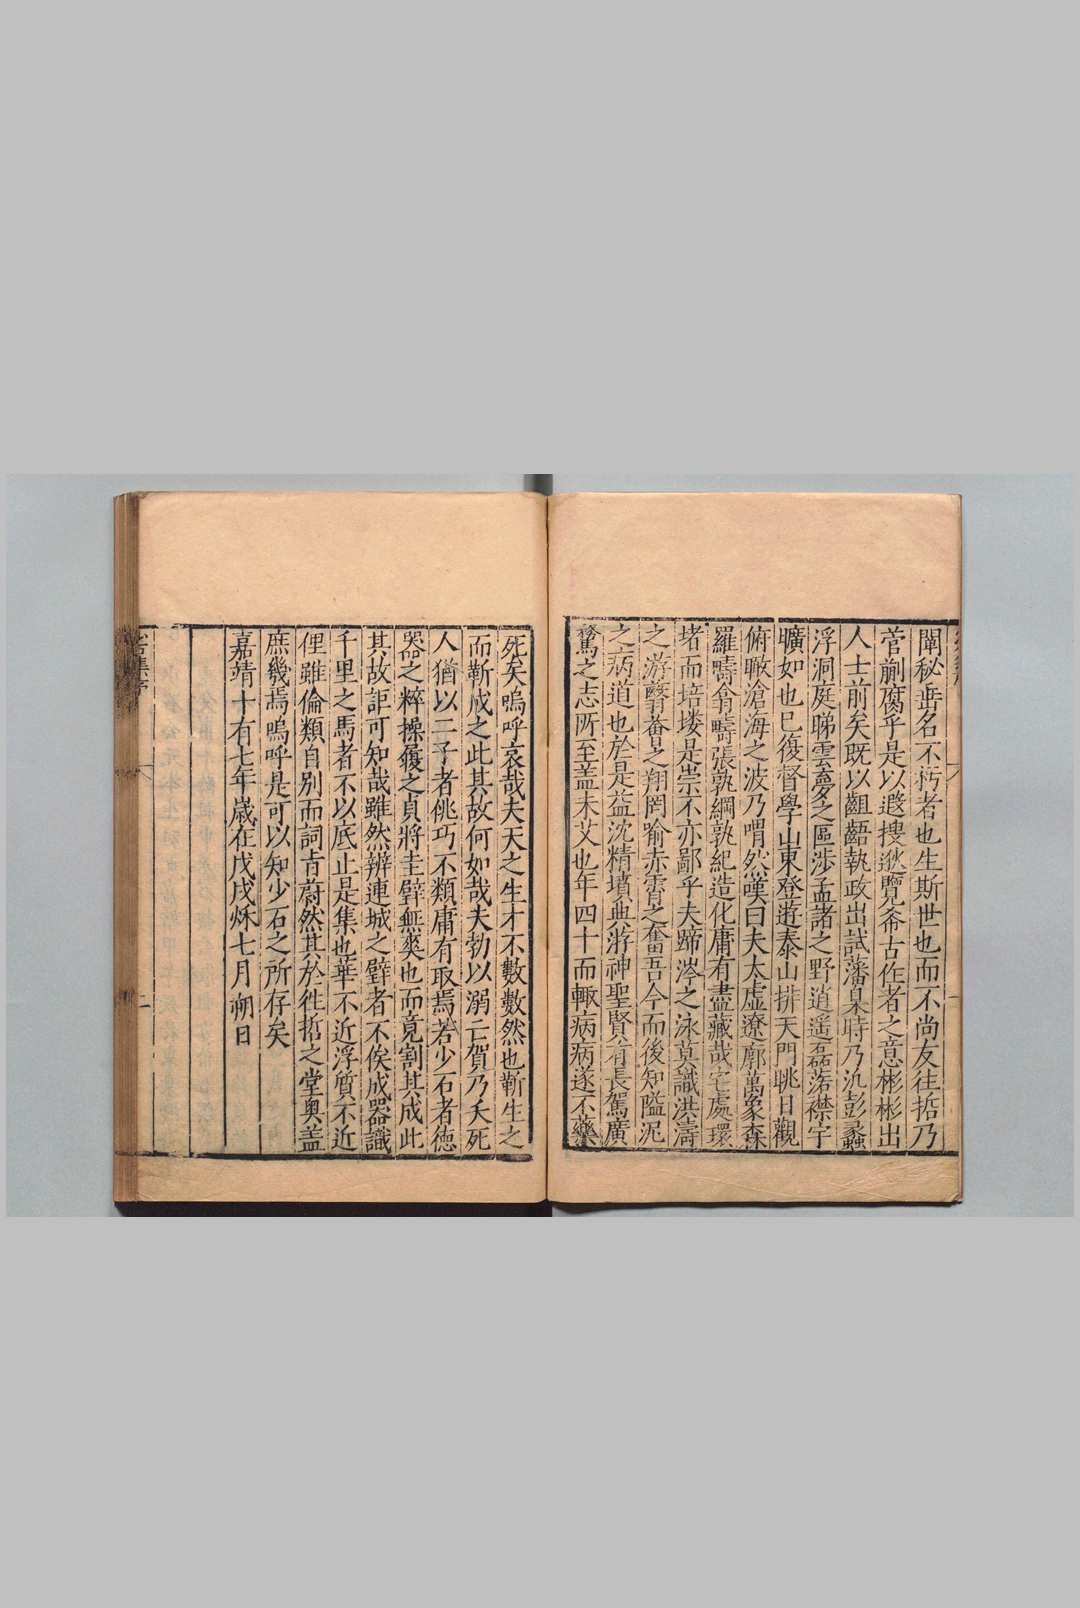 闡秘垂名不朽者也生斯世也而不尚友往哲乃
菅蒯腐乎是以遐搜逖覽希古作者之意彬彬出
人士前矣既以齟齬執政出試藩臬時乃汎彭蠡
浮洞庭睇雲夢之區涉孟諸之野逍遥磊落襟宇
曠如也已復督學山東登遊泰山排天門眺日觀
俯瞰滄海之波乃喟然嘆曰夫太虚遼廓萬象森
羅疇翕疇張孰綱孰紀造化庸有盡藏哉宅處環
堵而培塿是崇不亦鄙乎夫蹄涔之泳莫識洪濤
之游翳薈之翔罔喻赤霄之奮吾今而後知隘泥
之病道也於是益沈精墳典游神聖賢有長駕廣
騖之志所至盖未艾也年四十而輙病病遂不藥
死矣嗚呼哀哉夫天之生才不數數然也靳生之
而靳成之此其故何如哉夫勃以溺亡賀乃夭死
人猶以二子者佻巧不類庸有取焉若少石者德
器之粹操履之貞將圭璧無爽也而竟割其成此
其故詎可知哉雖然辨連城之璧者不俟成器識
千里之馬者不以底止是集也華不近浮質不近
俚雖倫類自别而詞旨蔚然其於徃哲之堂奥盖
庶幾焉嗚呼是可以知少石之所存矣
嘉靖十有七年歲在戊戌秌七月朔日
集序
二